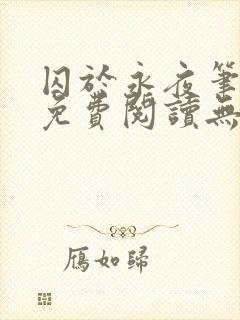 囚於永夜筆
免費閱讀無
雁如歸